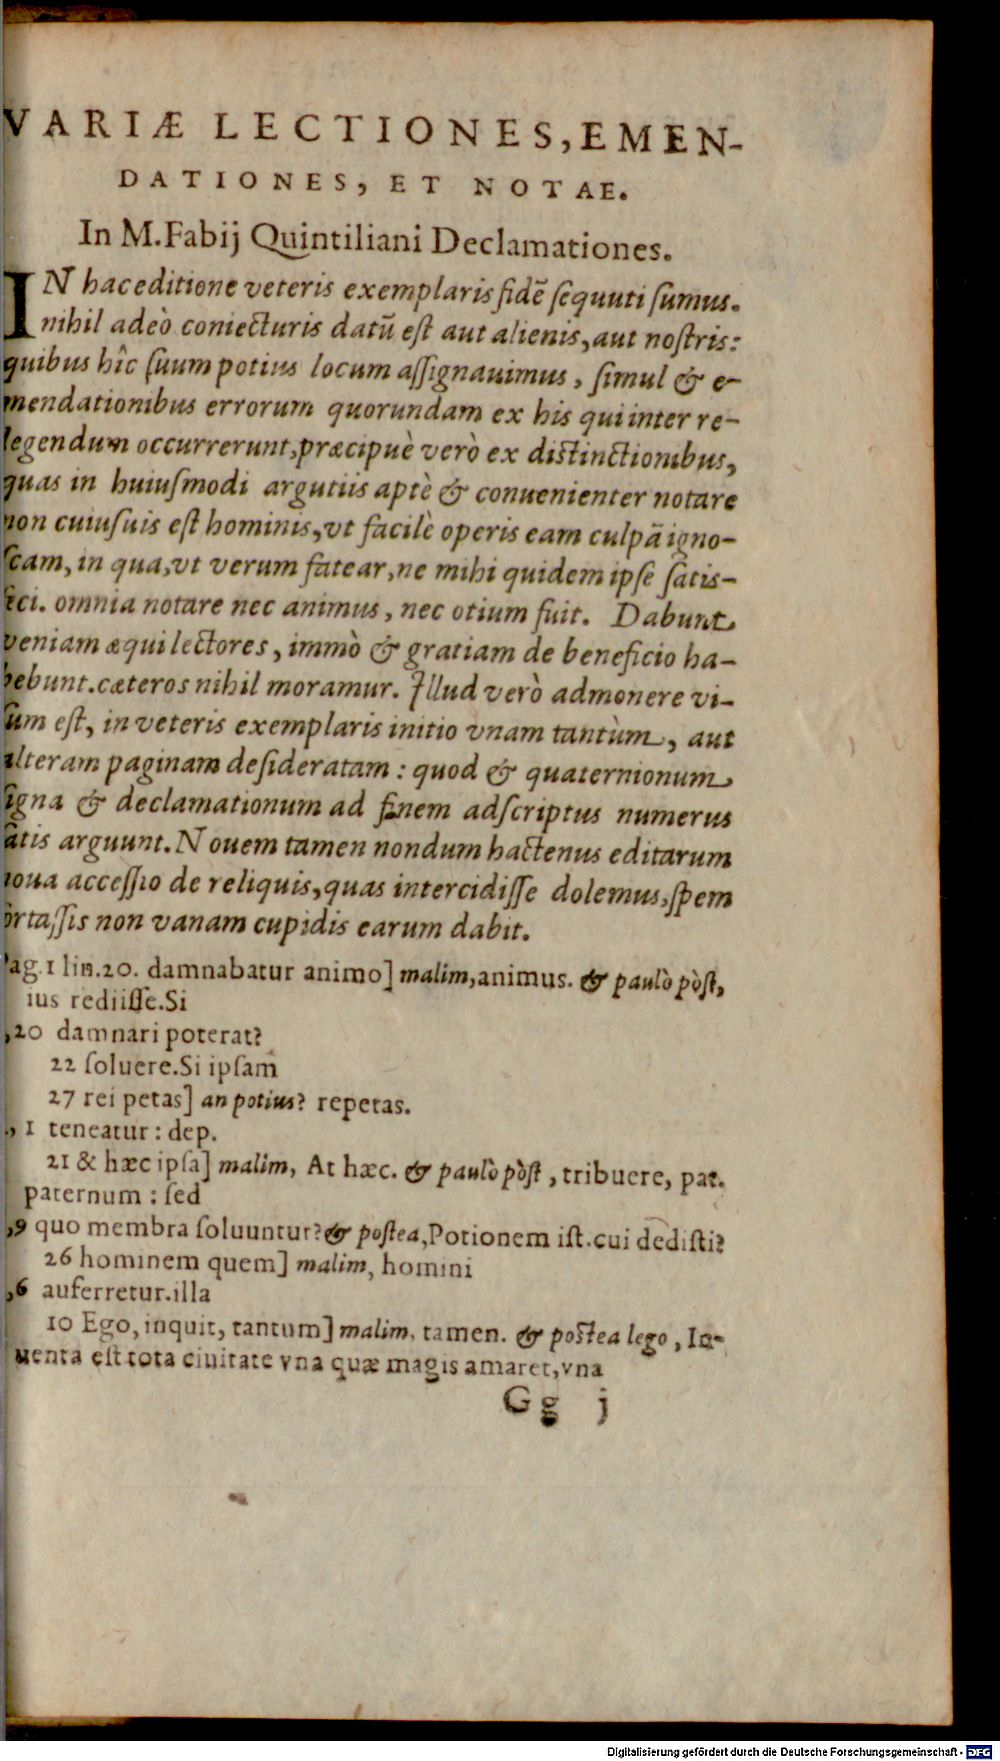 VARIÆ LECTIONES, EMEN-
DATIONES, ET NOTAE.
In M. Fabij Quintiliani Declamationes.
IN hac editione veteris exemplaris fidẽ sequuti sumus.
nihil adeò coniecturis datũ est aut alienis, aut nostris:
quibus hîc suum potius locum assignauimus, simul & e-
mendationibus errorum quorundam ex his qui inter re-
legendum occurrerunt, præcipuè verò ex distinctionibus,
quas in huiusmodi argutiis aptè & conuenienter notare
non cuiusuis est hominis, vt facilè operis eam culpã igno-
scam, in qua, vt verum fatear, ne mihi quidem ipse satis-
feci. omnia notare nec animus, nec otium fuit. Dabunt
veniam æqui lectores, immò & gratiam de beneficio ha-
bebunt. cæteros nihil moramur. Illud verò admonere vi-
sum est, in veteris exemplaris initio vnam tantùm, aut
alteram paginam desideratam: quod & quaternionum
signa & declamationum ad finem adscriptus numerus
satis arguunt. Nouem tamen nondum hactenus editarum
noua accessio de reliquis, quas intercidisse dolemus, spem
fortassis non vanam cupidis earum dabit.
Pag. 1 lin. 20. damnabatur animo] malim, animus. & paulò pòst,
ius rediisse. Si
,20 damnari poterat?
22 soluere. Si ipsam
27 rei petas] an potius? repetas.
., 1 teneatur: dep.
21 & hæc ipsa] malim, At hæc. & paulò pòst, tribuere, pat.
paternum: sed
,9 quo membra soluuntur? & postea, Potionem ist. cui dedisti?
26 hominem quem] malim, homini
,6 auferretur. illa
10 Ego, inquit, tantum] malim, tamen. & postea lego, In-
uenta est tota ciuitate vna quæ magis amaret, vna
Gg j
Digitalisierung gefördert durch die Deutsche Forschungsgemeinschaft - DFG